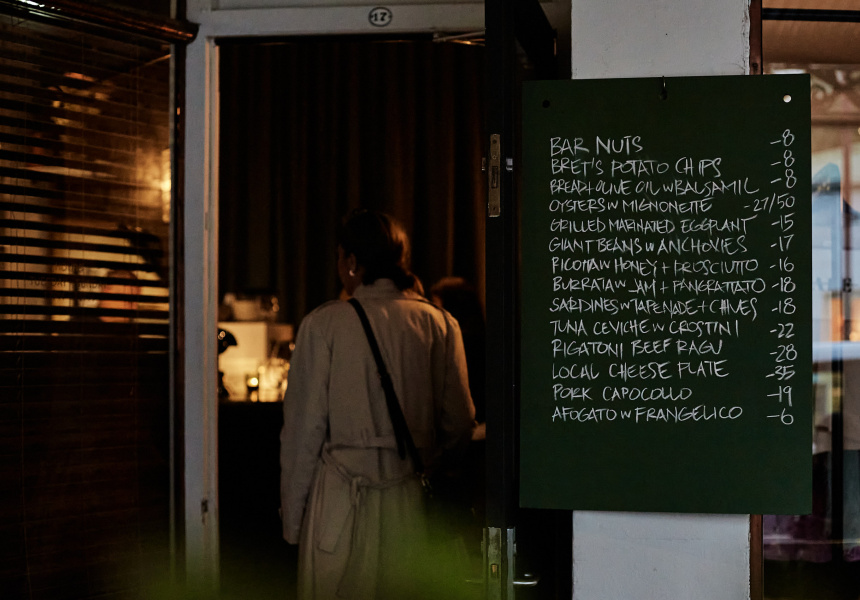 17
BAR NUTS -8
BRET'S POTATO CHIPS -8
BREAD + OLIVE OIL W BALSAMIC -8
OYSTERS W MIGNONETTE -27/50
GRILLED MARINATED EGGPLANT -15
GIANT BEANS W ANCHOVIES -17
RICOTTA W HONEY + PROSCIUTTO -16
BURRATA W JAM + PANGRATTATO -18
SARDINES W TAPENADE + CHIVES -18
TUNA CEVICHE W CROSTINI -22
RIGATONI BEEF RAGU -28
LOCAL CHEESE PLATE -35
PORK CAPOCOLLO -19
AFOGATO W FRANGELICO -6